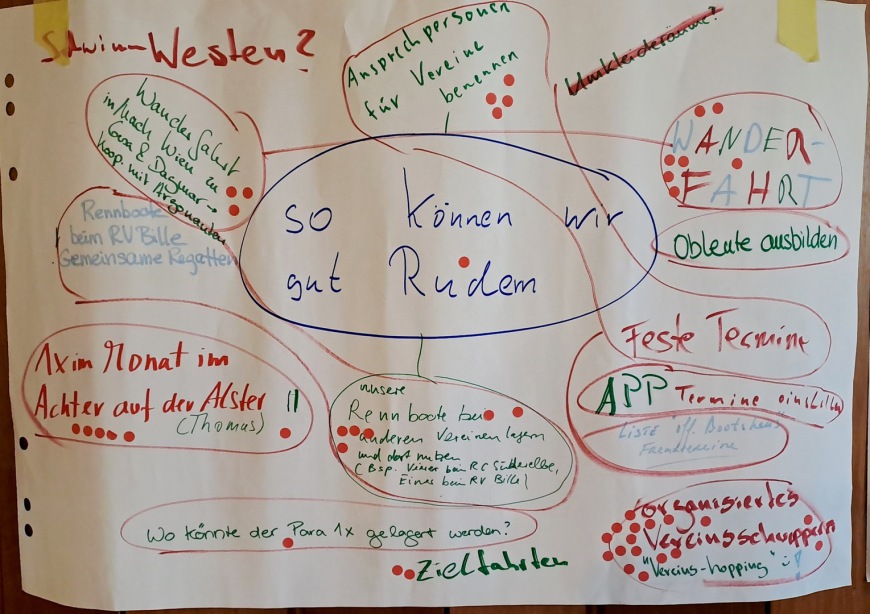 Schwimm-Westen?
Ansprechpersonen
für Vereine
benennen
Umkleideräume?
Wanderfahrt
in/nach Wien zu
& Dagmar →
koop. mit Argonauten
WANDER-
FAHRT
Rennboote
beim RV Bille
Gemeinsame Regatten
so können wir
gut Rudern
Obleute ausbilden
Feste Termine
1x im Monat im
Achter auf der Alster
(Thomas)
unsere
Rennboote bei
anderen Vereinen lagern
und dort nutzen
(Bsp. Vierer beim RC Süderelbe,
Einer beim RV Bille)
APP Termine einstellen
Liste öff. Bootshaus
Fremdtermine
Wo könnte der Para 1x gelagert werden?
Zielfahrten
organisiertes
Vereinsschnuppern
"Vereins-hopping" :-)!